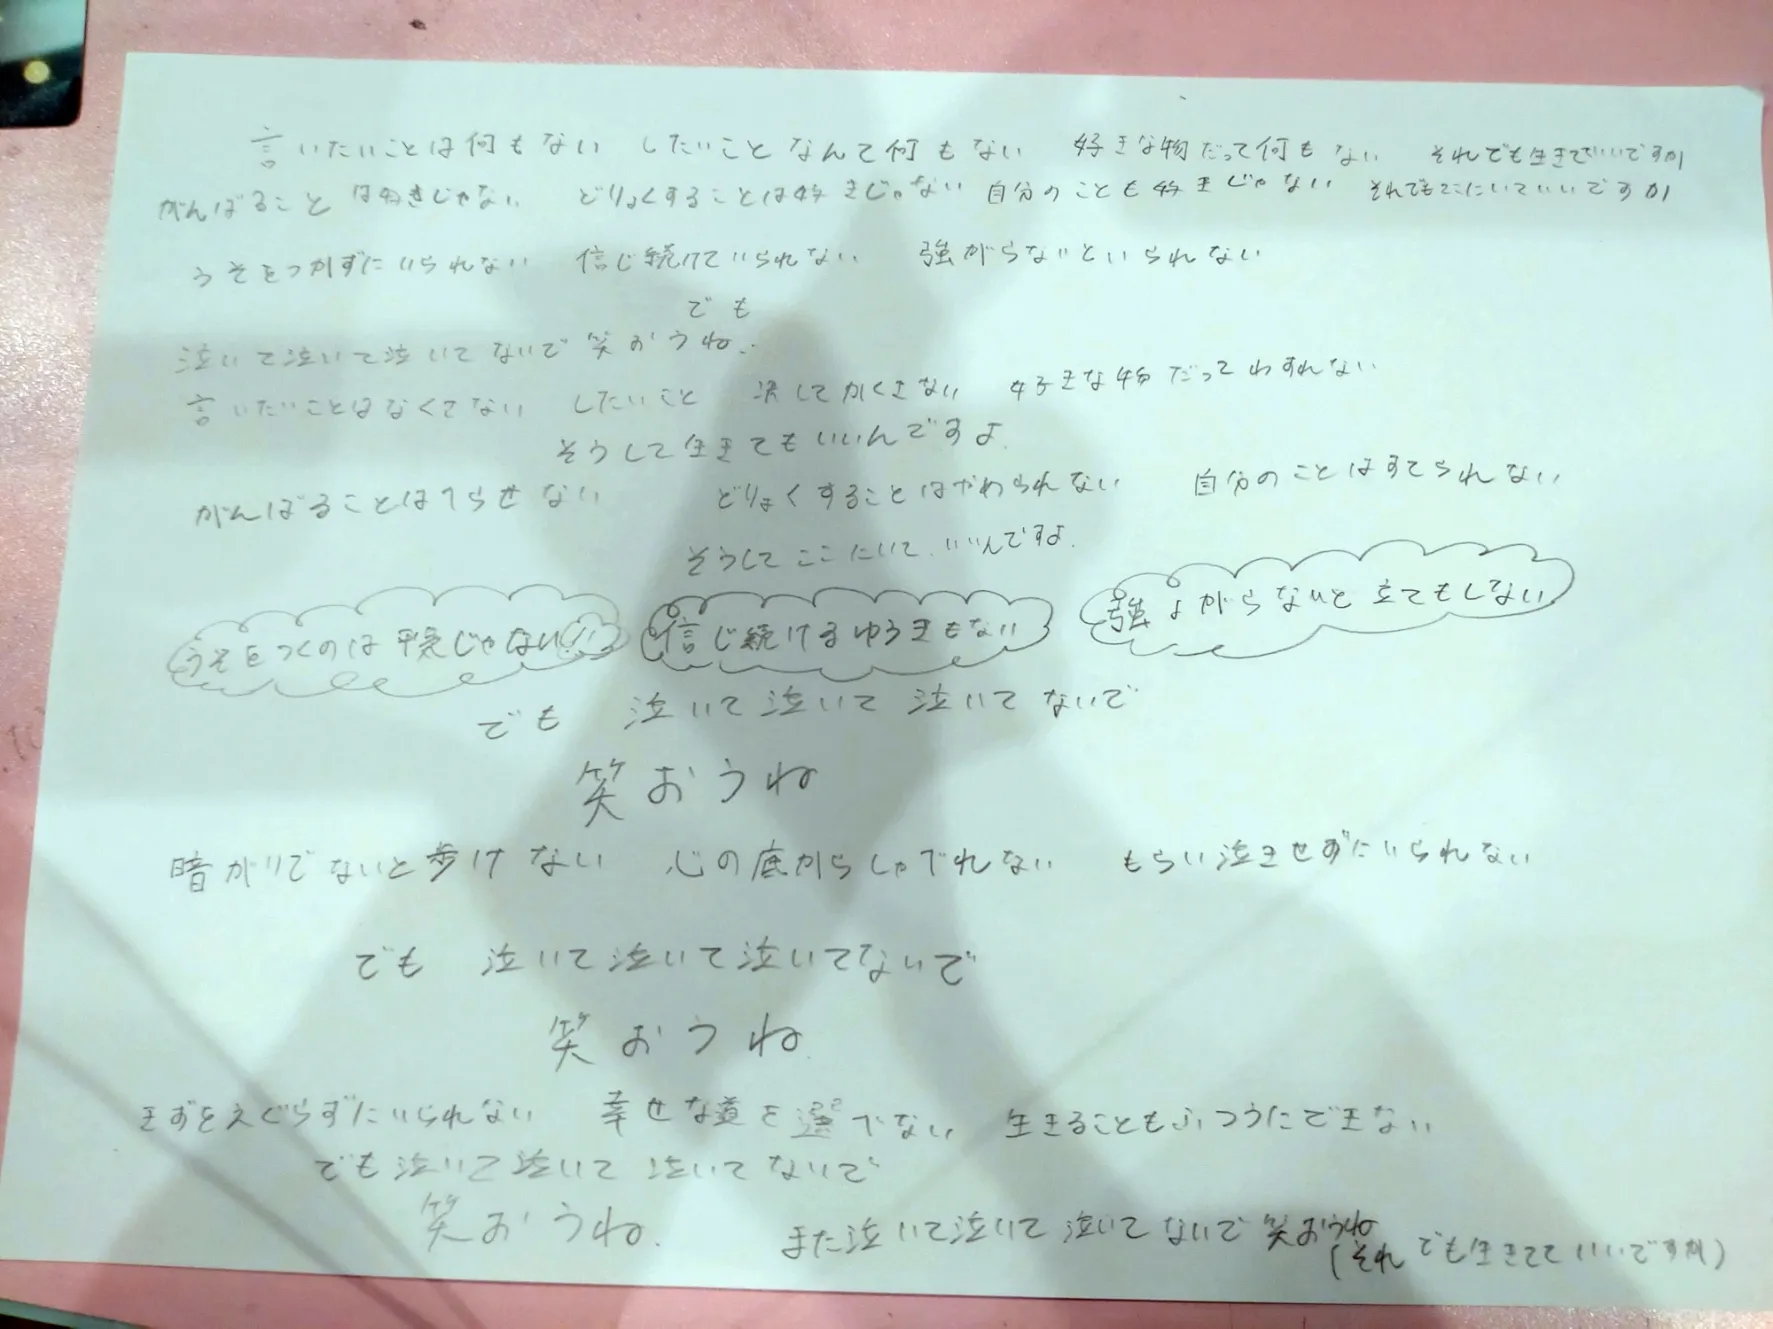 言いたいことは何もない したいことなんて何もない 好きな物だって何もない それでも生きていいですか
がんばることは好きじゃない どりょくすることは好きじゃない 自分のことも好きじゃない それでもここにいていいですか
うそをつかずにいられない 信じ続けていられない 強がらないといられない
でも
泣いて泣いて泣いてないで 笑おうね..
言いたいことはなくてない したいこと 決してかくさない 好きな物だってわすれない
そうして生きてもいいんですよ.
がんばることはへらせない どりょくすることはかわられない 自分のことはすてられない
そうしてここにいて.いいんですよ.
うそをつくのは平気じゃない!! 信じ続けるゆうきもない 強よがらないと立てもしない
でも 泣いて泣いて 泣いてないで
笑おうね
暗がりでないと歩けない 心の底からしゃべれない もらい泣きせずにいられない
でも 泣いて泣いて泣いてないで
笑おうね.
きずをえぐらずにいられない 幸せな道を選べない 生きることもふつうにできない
でも泣いて泣いて 泣いてないで
笑おうね. また泣いて泣いて 泣いてないで 笑おうね
(それでも生きてていいですか)